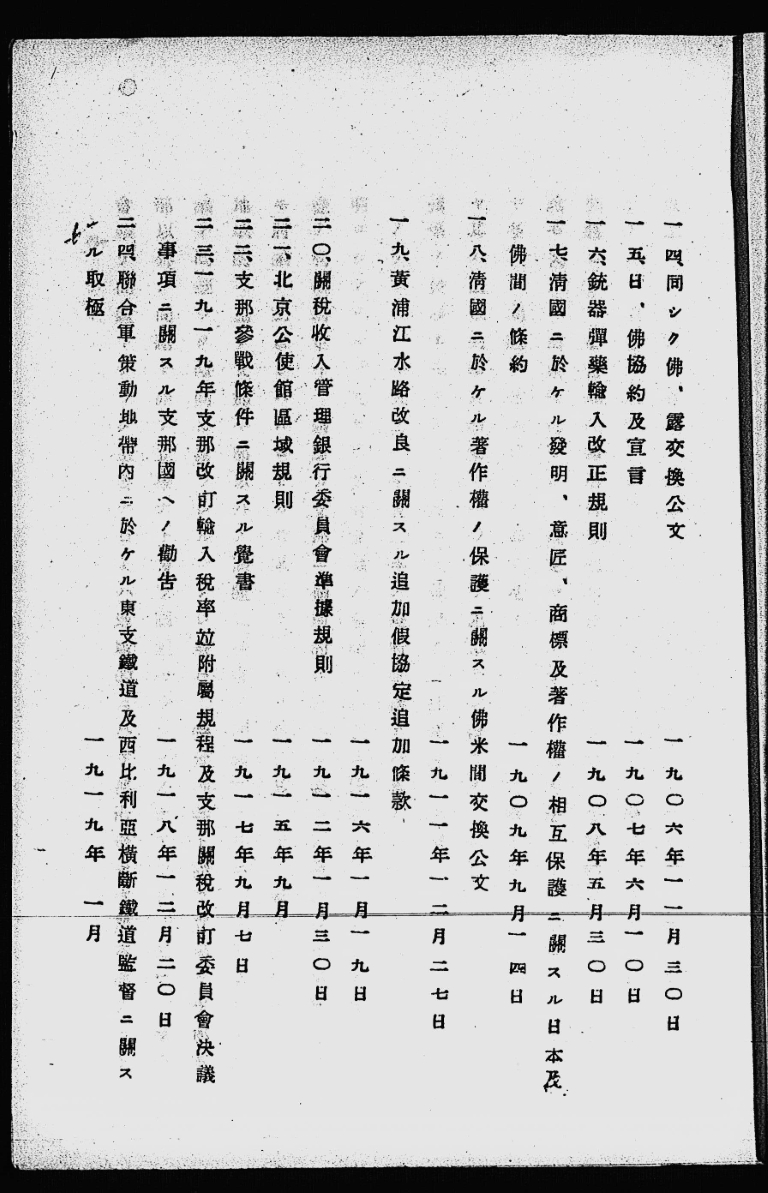 一四、同シク佛、露交換公文　一九〇六年一一月三〇日
一五、日、佛協約及宣言　一九〇七年六月一〇日
一六、銃器彈藥輸入改正規則　一九〇八年五月三〇日
一七、清國ニ於ケル發明、意匠、商標及著作權ノ相互保護ニ關スル日本及
佛間ノ條約　一九〇九年九月一四日
一八、清國ニ於ケル著作權ノ保護ニ關スル佛米間交換公文
一九一一年一二月二七日
一九、黃浦江水路改良ニ關スル追加假協定追加條款
一九一六年一月一九日
二〇、關稅收入管理銀行委員會準據規則　一九一二年一月三〇日
二一、北京公使館區域規則　一九一五年九月
二二、支那參戰條件ニ關スル覺書　一九一七年九月七日
二三、一九一九年支那改訂輸入稅率竝附屬規程及支那關稅改訂委員會決議
事項ニ關スル支那國ヘノ勸告　一九一八年一二月二〇日
二四、聯合軍策動地帶內ニ於ケル東支鐵道及西比利亞橫斷鐵道監督ニ關ス
ル取極　一九一九年　一月